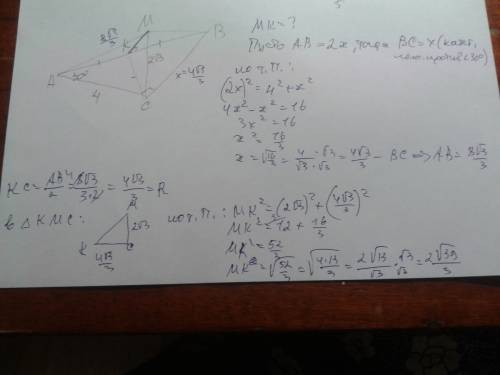 M
B
8√3/3
K
2√3
x=4√3/3
A
30°
4
C
MK=?
Пусть AB=2x, тогда BC=x (катет,
против <30°)
по т.П.:
(2x)²=4²+x²
4x²-x²=16
3x²=16
x²=16/3
x=√16/3=4/√3·√3/√3=4√3/3 - BC => AB=8√3/3
KC=AB/2=8√3/3·2=4√3/3=R
в △KMC:
M
2√3
K
C
4√3/3
по т.П.: MK²=(2√3)²+(4√3/3)²
MK²=12+16/3
MK²=52/3
MK=√52/3=√4·13/3=2√13/√3·√3/√3=2√39/3